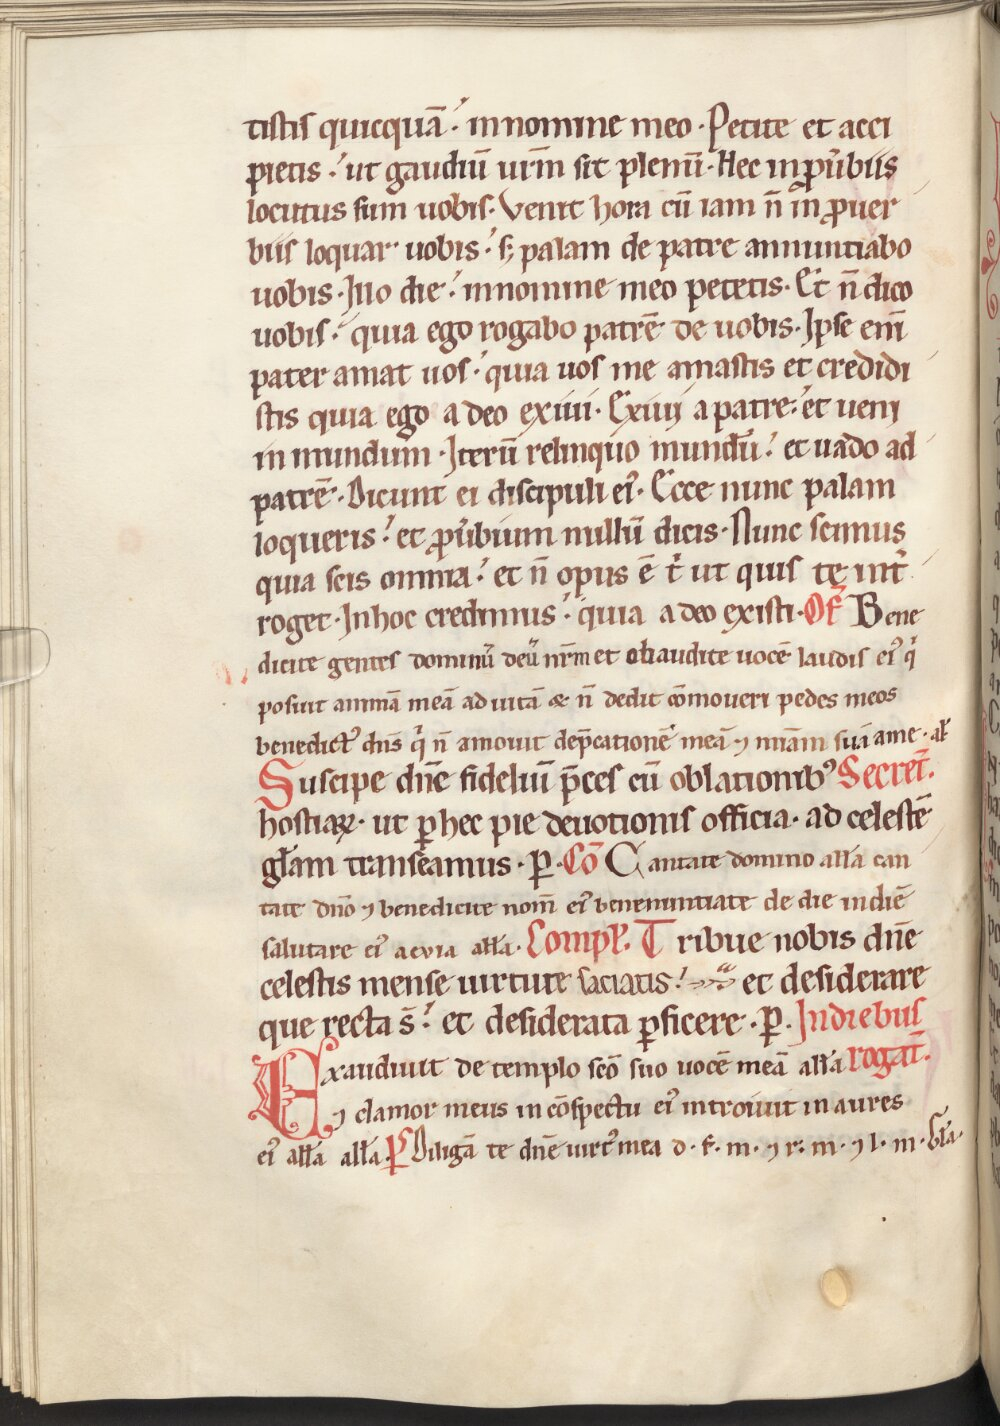 tistis quicquā · innomine meo · Petite et acci
pietis · ut gaudiū urm̄ sit plenū · Hec inꝓu̓biis
locutus sum uobis · Venit hora cū iam n̄ in ꝓuer
biis loquar uobis · s; palam de patre annuntiabo
uobis · Illo die · innomine meo petetis · Et n̄ dico
uobis · quia ego rogabo patrē de uobis · Ipse eni̅
pater amat uos · quia uos me amastis et credidi
stis quia ego adeo exiui · Exiui apatre · et ueni
in mundum · Iterū relinquo mundū · et uado ad
patrē · Dicunt ei discipuli ei᾿ · Ecce nunc palam
loqueris · et ꝓu̓bium nullū dicis · Nunc scimus
quia scis omnia · et n̄ opus ē t̓ ut quis te int̓
roget · Inhoc credimus · quia adeo existi · Of̄ Bene
dicite gentes dominū deū nr̄m et obaudite uocē laudis ei᾿ q̓
posuit animā meā ad uitā & n̄ dedit cōmoueri pedes meos
benedict᾿ dn̄s q̓ n̄ amouit dep̄cationē meā ⁊ mi̅am suā ame · al̄l
Suscipe dn̄e fidelium p̄ces cū oblationib᾿ Secret̄ .
hostiaꝝ · ut ꝑ hec pie deuotionis officia · ad celestē
gl̄am transeamus · P̱ · Cō Cantate domino all̄a can
tate dn̄o ⁊ benedicite nom̄ ei᾿ benenuntiate de die indiē
salutare ei᾿ aeuia all̄a · Compl̄ . Tribue nobis dn̄e
celestis mense uirtute saciatis · et desiderare
que recta s̄ · et desiderata ꝑficere · P̱ . Indiebus
Exaudiuit de templo scō suo uocē meā all̄a rogat̄ .
⁊ clamor meus in cōspectu ei᾿ introiuit in aures
ei᾿ all̄a all̄a P̄ Diligā te dn̄e uirt᾿ mea d · f · m · ⁊ r · m · ⁊ l · m · Gl̄a ·